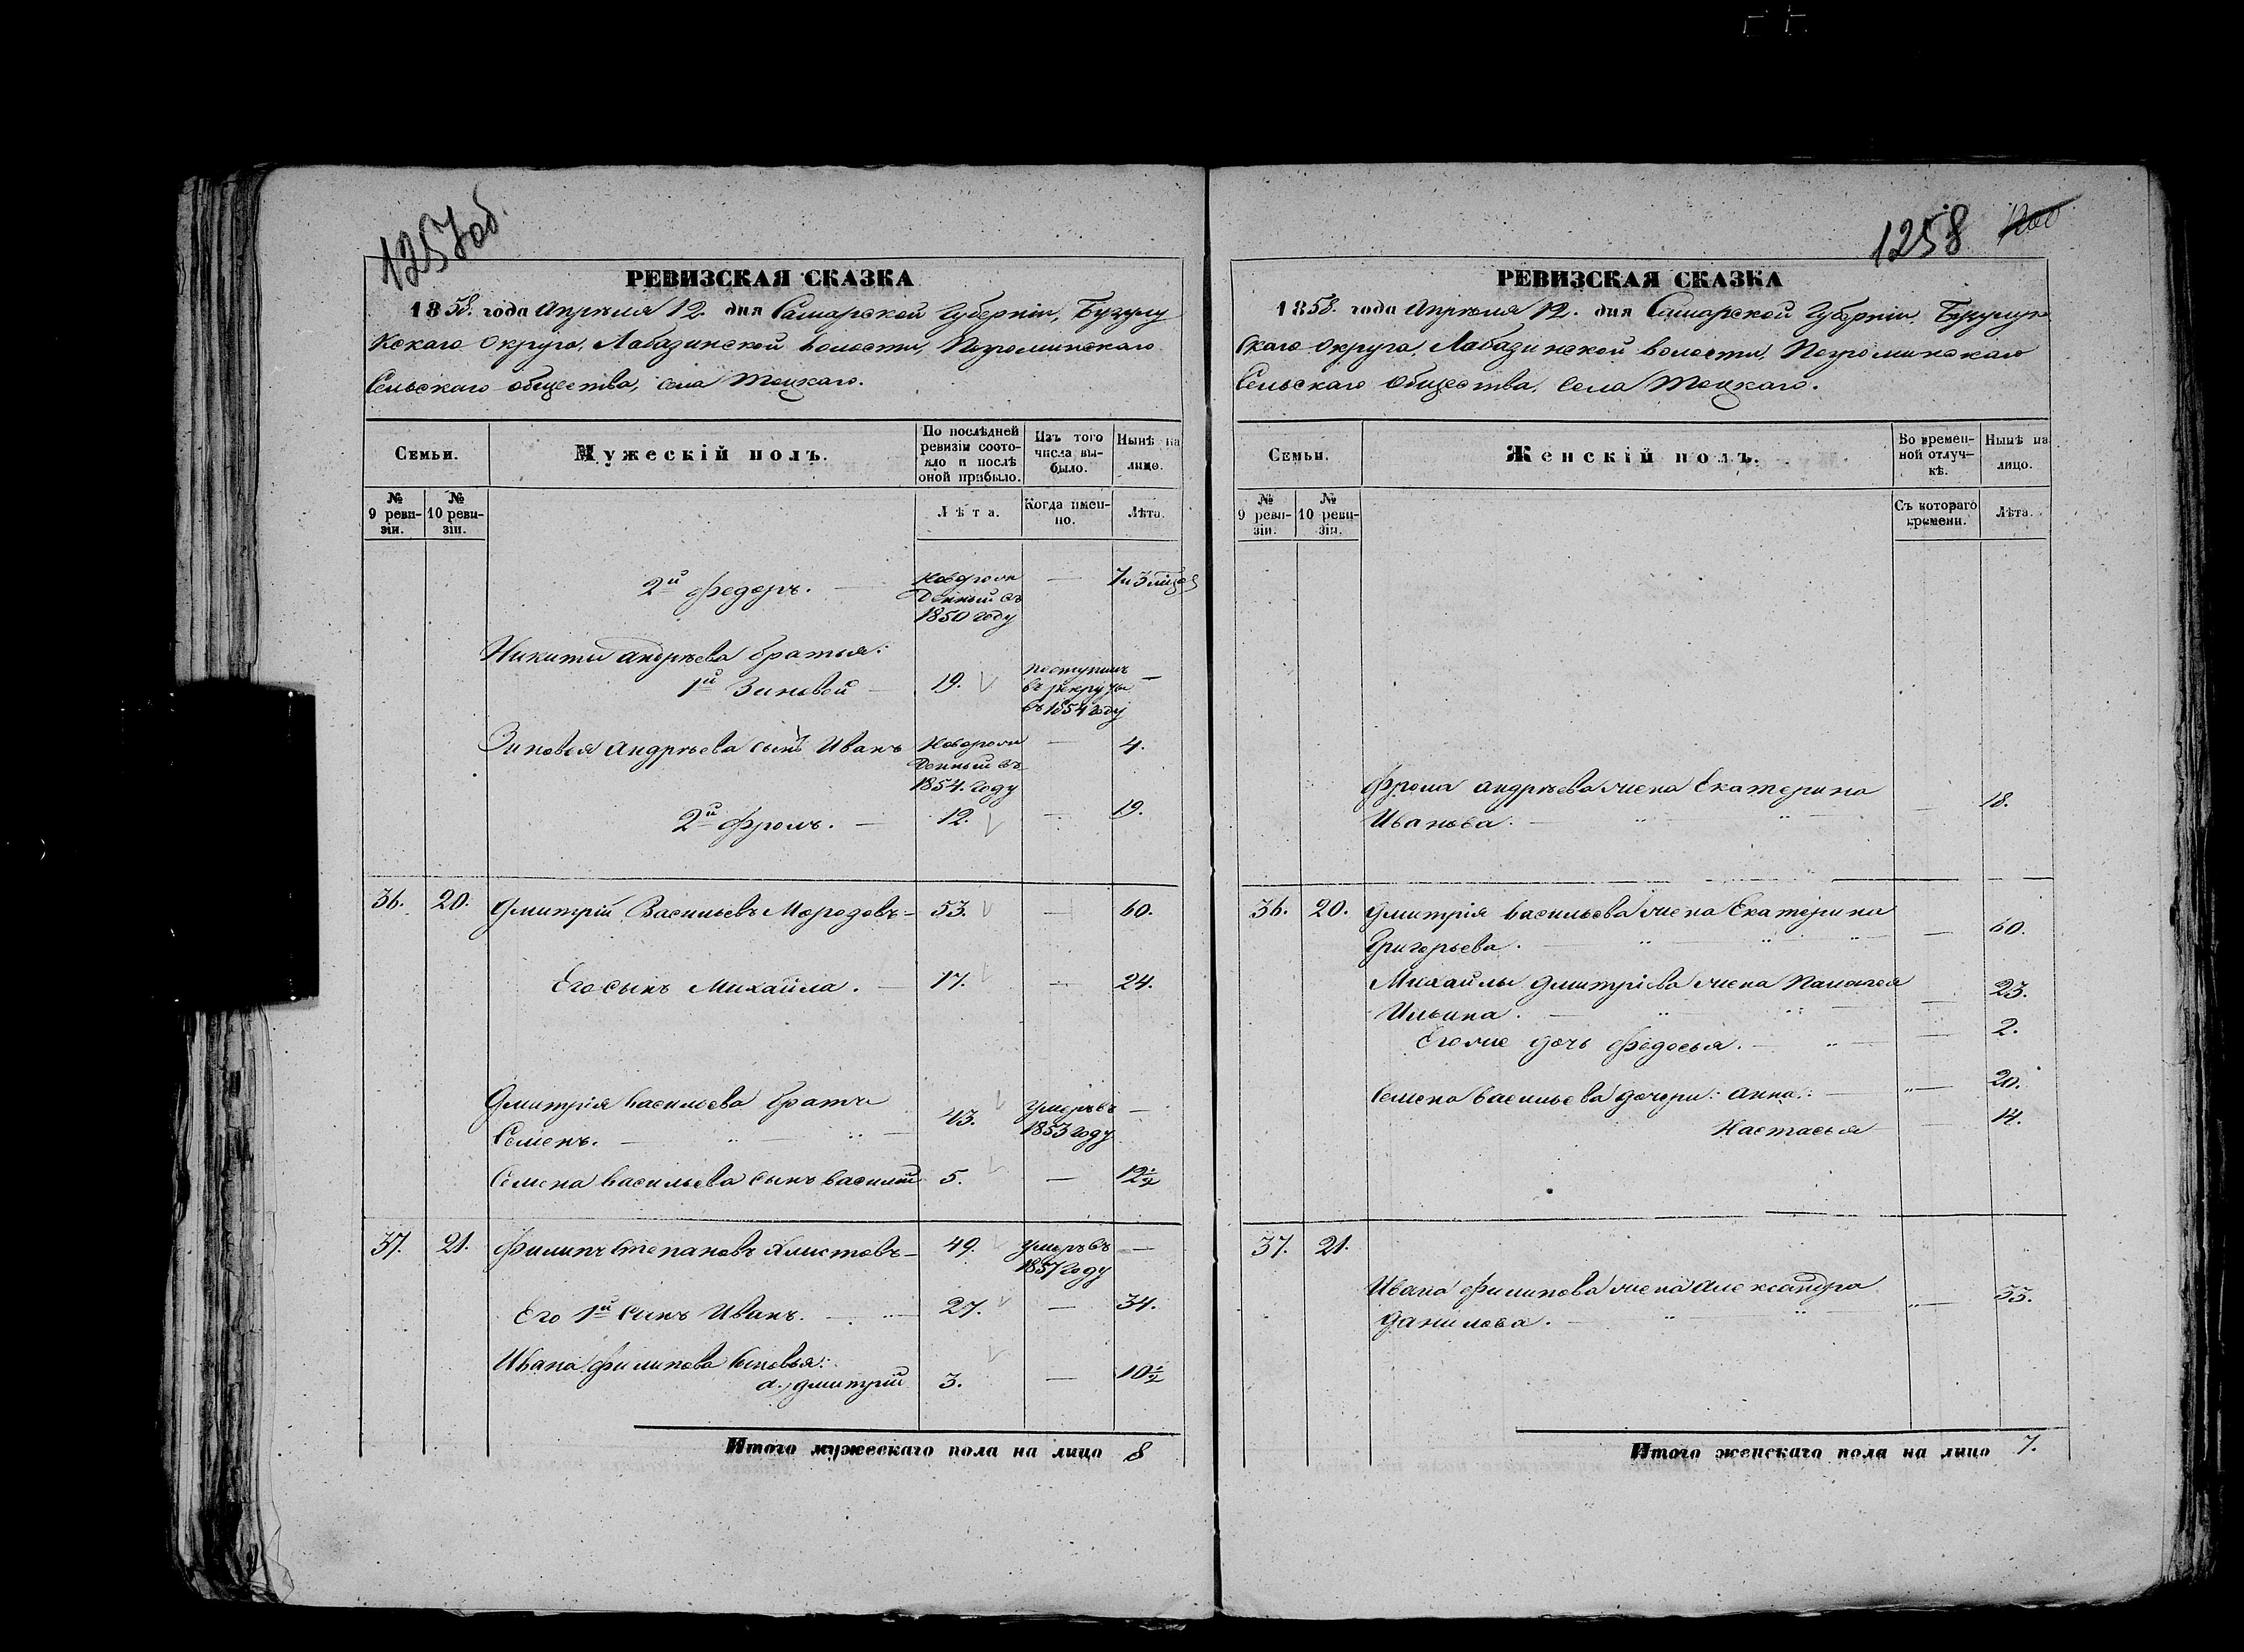 1257 об.
РЕВИЗСКАЯ СКАЗКА
1858. года Апрѣля 12. дня Самарской Губерніи, Бузулу
кскаго Округа, Лабазинской волости, Погроминскаго
Сельскаго общества, села Тоцкаго.
Семьи.
Мужескій полъ.
По послѣдней ревизіи состояло и послѣ оной прибыло.
Изъ того числа выбыло.
Нынѣ на лицо.
№ 9 ревизіи.
№ 10 ревизіи.
Лѣта.
Когда именно.
Лѣта.
2й Федоръ. — Новорож — 7 и 3 мѣсяц
денный въ
1850 году
Никиты Андрѣева братья:
1й Зиновей — 19. Поступилъ —
въ рекруты
въ 1854 году
Зиновья Андрѣева сынъ Иванъ Новорож — 4.
денный въ
1854. году
2й Фролъ. — 12. — 19.
36. 20. Дмитрій Васильевъ Морозовъ — 53. — 60.
Его сынъ Михайла. — 17. — 24.
Дмитрія Васильева братъ
Семенъ. — 43. Умеръ въ —
1853 году
Семена Васильева сынъ Василій 5. — 12½
37. 21. Филипъ Степановъ Хлистовъ — 49. Умеръ въ —
1857 году
Его 1й сынъ Иванъ. — 27. — 34.
Ивана Филипова сыновья:
а., Дмитрій 3. — 10½
Итого мужескаго пола на лицо 8
1258
РЕВИЗСКАЯ СКАЗКА
1858. года Апрѣля 12. дня Самарской Губерніи, Бузулук
скаго Округа, Лабазинской волости, Погроминскаго
Сельскаго Общества, Села Тоцкаго.
Семьи.
Женскій полъ.
Во временной отлучкѣ.
Нынѣ на лицо.
№ 9 ревизіи.
№ 10 ревизіи.
Съ котораго времени.
Лѣта.
Фрола Андрѣева жена Екатерина
Иванова. — 18.
36. 20. Дмитрія Васильева жена Екатерина
Григорьева. — 60.
Михайлы Дмитріева жена Палагея
Ильина. — 23.
Его же дочь Федосья. — 2.
Семена Васильева дочери: Анна: — 20.
Настасья — 14.
37. 21.
Ивана Филипова жена Александра
Данилова. — 33.
Итого женскаго пола на лицо 7.